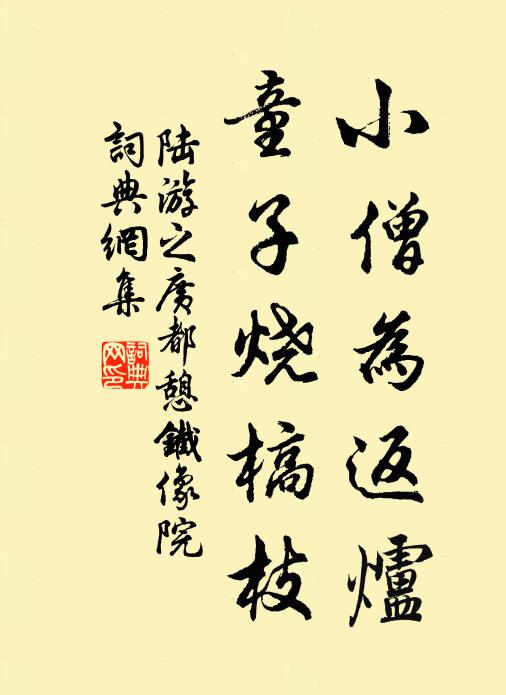 小僧為返爐
童子烧槁枝
陆游之廣都憩鐵像院
詞典網集
詞典網印